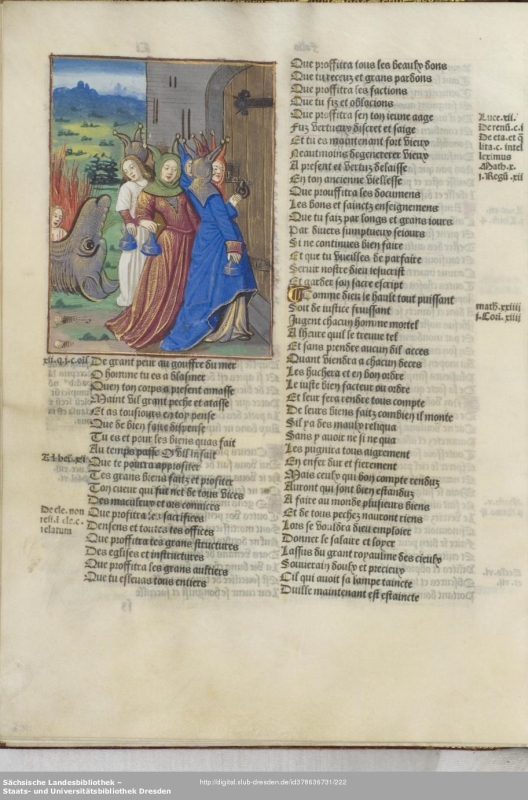 De grant peur au gouffre du mer
O homme tu es a blasmer
Quen ton corps a present amasse
Maint vil grant peche et atasse
Et as tousiours en toy pense
Que de bien faire dispense
Tu es et pour les biens quas fait
Au temps passe
Que te pourra approfiter
Tes grans biens faitz et profiter
Ton cueur qui fut net de tous vices
Des maculeurs et
Que profitra les sacrifices
Densens et toutes tes offices
Que proffitra tes grans structures
Des eglises et instructures
Que proffitra les grans aultiers
Que tu esleuas tous entiers
Que proffitra tous les beaulx dons
Que tu receuz et grans pardons
Que proffitra ses factions
Que tu fiz et oblacions
Que proffitra sen ton ieune aage
Fuz vertueux discret et saige
Et tu es maintenant fort vieux
Neautmoins degenererer vieux
A present et vertuz delaisse
En ton ancienne viellesse
Que prouffitra les documens
Les bons et sainctz enseignemens
Que tu faiz par longs et grans iours
Par diuers sumptueux seiours
Si ne continues bien faire
Et que tu vueilles de parfaire
Seruir nostre dieu iesucrist
Et garder son sacre escript
Comme dieu le hault tout puissant
Soit de iustice fruissant
Jugent chacun homme mortel
A lheure quil le treuue tel
Et sans prendre aucun dil acces
Quant viendra a chacun deces
Les huchera et en bon ordre
Le iuste bien facteur ou ordre
Et leur fera rendre tous compte
De leurs biens faitz combien il monte
Sil ya des maulx reliqua
Sans y auoir ne si ne qua
Les pugnira tous aigrement
En enfer dur et fierement
Mais ceulx qui bon compte rendux
Auront qui sont bien estanduz
A faire au monde plusieurs biens
Et de tous pechez nauront riens
Lors se vouldra dieu employer
Donner le salaire et loyer
Lassus du grant royaulme des cieulx
Souuerain doulx et precieux
Cil qui auoit sa lampe taincte
Duille maintenant est estaincte
Luce.xii.
De renū.c.i
De eta.et q̄
lita.c. intel
leximus
Math.x.
i.Regū.xii
math.xxiiii
i.Coū.xiiii
xii.q.i.c.oīl
Ad heb.xi
De cle. non
resi.i cle.c.
relatum
Sächsische Landesbibliothek –
Staats- und Universitätsbibliothek Dresden
http://digital.slub-dresden.de/id378636731/222